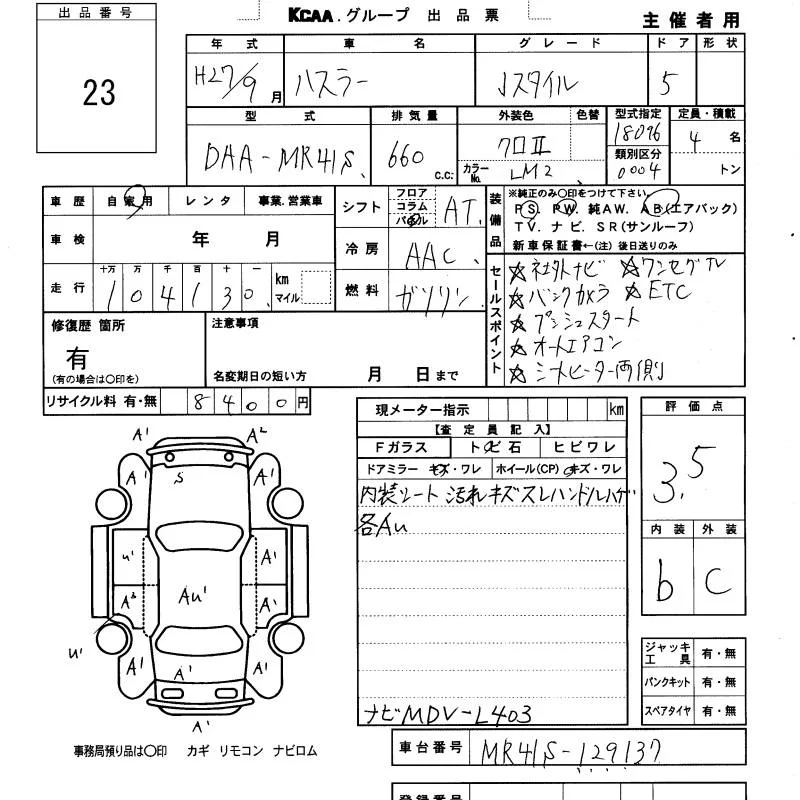 出品番号
23
KCAA.グループ 出品票
主催者用
年式 車名 グレード ドア 形状
H27/9月 ハスラー Jスタイル 5
型式 排気量 外装色 色替 型式指定 定員・積載
DAA-MR41S 660 c.c. クロII 18076 4名
カラーNo. LM2 類別区分 0004 トン
車歴 自家用 レンタ 事業.営業車
車検 年 月
走行 十万 万 千 百 十 一
104130 km マイル
シフト フロア コラム パネル AT
冷房 AAC
燃料 ガソリン
装備品 ※純正のみ〇印をつけて下さい。
PS. PW. 純AW. AB(エアバック)
TV. ナビ. SR(サンルーフ)
新車保証書←(注)後日送りのみ
セールスポイント
☆社外ナビ ☆ワンセグTV
☆バックカメラ ☆ETC
☆プッシュスタート
☆オートエアコン
☆シートヒーター両側
修復歴 箇所
有
(有の場合は〇印を)
注意事項
名変期日の短い方 月 日まで
リサイクル料 有・無 8400円
現メーター指示 km
【査定員記入】
Fガラス トビ石 ヒビワレ
ドアミラー キズ・ワレ ホイール(CP) キズ・ワレ
内装シート 汚れキズスレハンドルハゲ
各Au
ナビMDV-L403
評価点
3.5
内装 外装
b C
ジャッキ工具 有・無
パンクキット 有・無
スペアタイヤ 有・無
A' A2
A' S A'
U' A'
A2 Au' A'
U' A' A' A'
A'
事務局預り品は〇印 カギ リモコン ナビロム
車台番号 MR41S-129137
登録番号